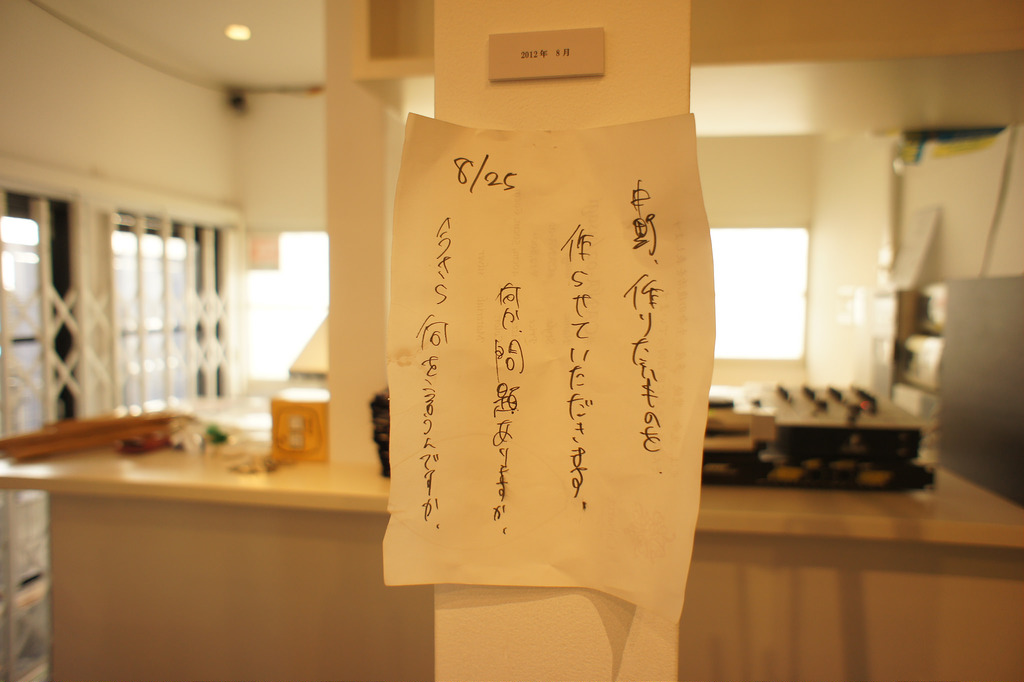 2012年 8月
8/25
中野、作りたいものを
作らせていただきます。
何か、問題ありますか、
今さら 何を んですか。